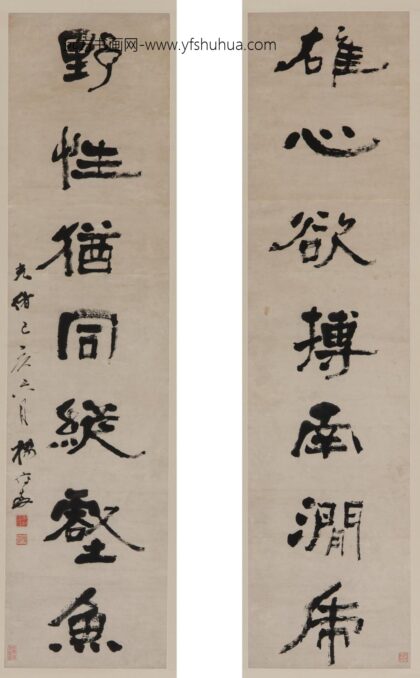 书画网-www.yfshuhua.com
雄心欲搏南澗虎
野性猶同縱壑魚
光緒己亥六月 楊守敬